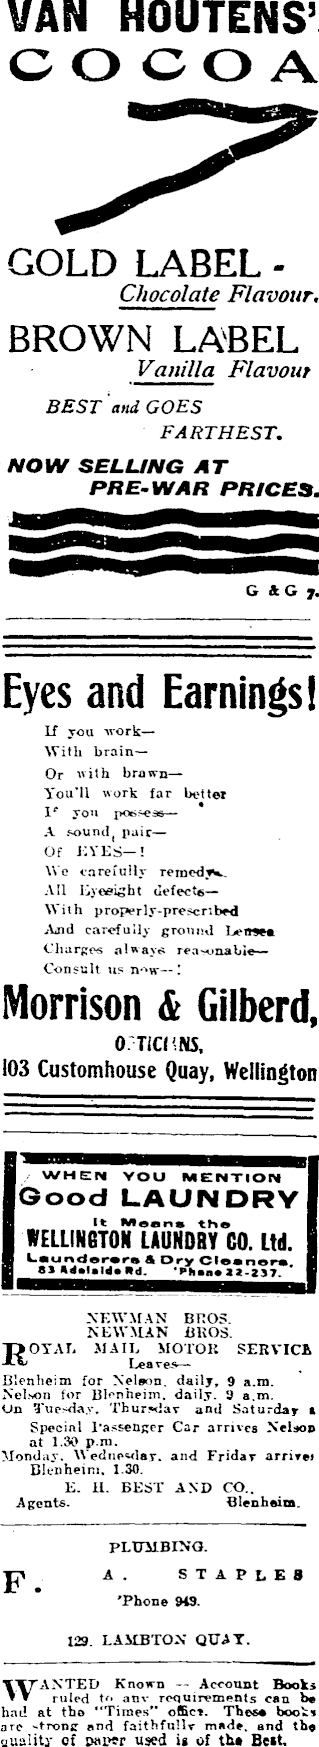 VAN HOUTENS'
COCOA
GOLD LABEL -
Chocolate Flavour.
BROWN LABEL
Vanilla Flavour
BEST and GOES
FARTHEST.
NOW SELLING AT
PRE-WAR PRICES.
G & G 7.
Eyes and Earnings!
If you work—
With brain—
Or with brawn—
You'll work far better
If you possess—
A sound pair—
Of EYES—!
We carefully remedy
All Eyesight defects—
With properly-prescribed
And carefully ground Lenses
Charges always reasonable—
Consult us now—!
Morrison & Gilberd,
OPTICIANS,
103 Customhouse Quay, Wellington
WHEN YOU MENTION
Good LAUNDRY
It Means the
WELLINGTON LAUNDRY CO. Ltd.
Launderers & Dry Cleaners,
83 Adelaide Rd. 'Phone 22-237.
NEWMAN BROS.
NEWMAN BROS.
ROYAL MAIL MOTOR SERVICE
Leaves—
Blenheim for Nelson, daily, 9 a.m.
Nelson for Blenheim, daily, 9 a.m.
On Tuesday, Thursday and Saturday a
Special Passenger Car arrives Nelson
at 1.30 p.m.
Monday, Wednesday, and Friday arrives
Blenheim, 1.30.
E. H. BEST AND CO.,
Agents. Blenheim.
PLUMBING.
F. A. STAPLES
'Phone 949.
129. LAMBTON QUAY.
WANTED Known -- Account Books
ruled to any requirements can be
had at the "Times" office. These books
are strong and faithfully made, and the
quality of paper used is of the Best.